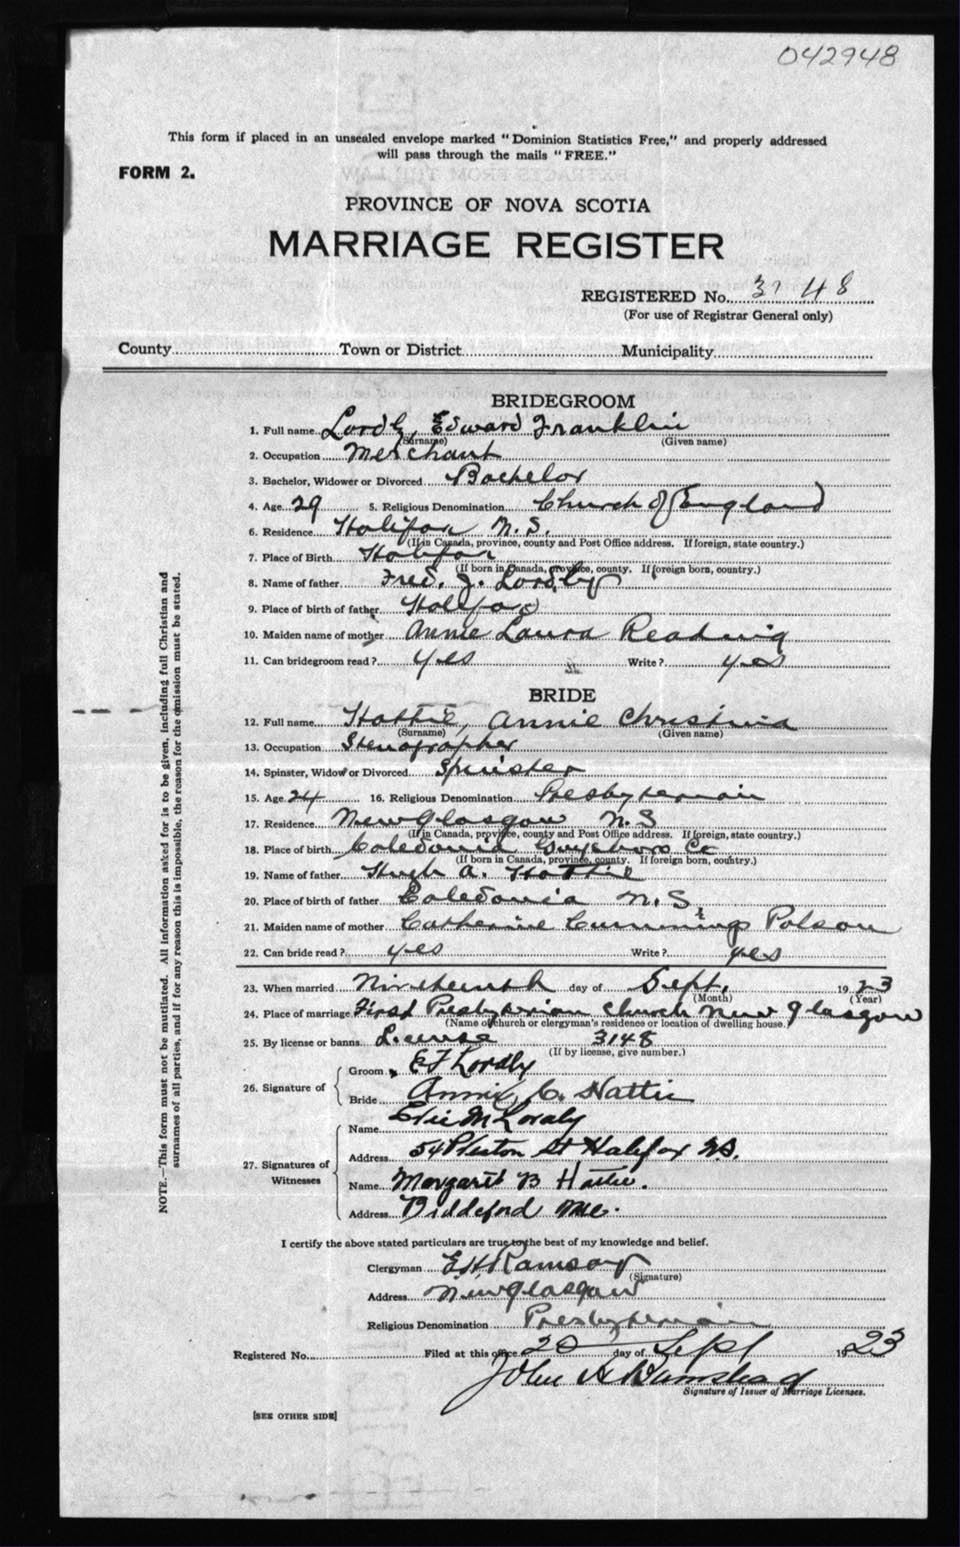 042948
This form if placed in an unsealed envelope marked "Dominion Statistics Free," and properly addressed
will pass through the mails "FREE."
FORM 2.
PROVINCE OF NOVA SCOTIA
MARRIAGE REGISTER
REGISTERED No. 3148
(For use of Registrar General only)
County Town or District Municipality
BRIDEGROOM
1. Full name Lordly, Edward Franklin
(Surname) (Given name)
2. Occupation Merchant
3. Bachelor, Widower or Divorced Bachelor
4. Age 29 5. Religious Denomination Church of England
6. Residence Halifax N.S.
(If in Canada, province, county and Post Office address. If foreign, state country.)
7. Place of Birth Halifax
(If born in Canada, province, county. If foreign born, country.)
8. Name of father Fred. J. Lordly
9. Place of birth of father Halifax
10. Maiden name of mother Annie Laura Reading
11. Can bridegroom read? yes Write? yes
BRIDE
12. Full name Hattie, Annie Christina
(Surname) (Given name)
13. Occupation Stenographer
14. Spinster, Widow or Divorced Spinster
15. Age 24 16. Religious Denomination Presbyterian
17. Residence New Glasgow N.S
(If in Canada, province, county and Post Office address. If foreign, state country.)
18. Place of birth Caledonia Guysboro Co
(If born in Canada, province, county. If foreign born, country.)
19. Name of father Hugh A. Hattie
20. Place of birth of father Caledonia N.S.
21. Maiden name of mother Catherine Cummings Polson
22. Can bride read? yes Write? yes
23. When married Nineteenth day of Sept. 1923
(Month) (Year)
24. Place of marriage First Presbyterian Church New Glasgow
(Name of church or clergyman's residence or location of dwelling house.)
25. By license or banns License 3148
(If by license, give number.)
26. Signature of
Groom E F Lordly
Bride Annie C. Hattie
27. Signatures of Witnesses
Name M Lordly
Address 54 St Halifax N.S.
Name Margaret B Hattie.
Address Biddeford Me.
I certify the above stated particulars are true to the best of my knowledge and belief.
Clergyman E.H. Ramsay
(Signature)
Address New Glasgow
Religious Denomination Presbyterian
Registered No. Filed at this office 20 day of Sept 1923
John A
Signature of Issuer of Marriage Licenses.
[SEE OTHER SIDE]
NOTE.—This form must not be mutilated. All information asked for is to be given, including full Christian and
surnames of all parties, and if for any reason this is impossible, the reason for the omission must be stated.